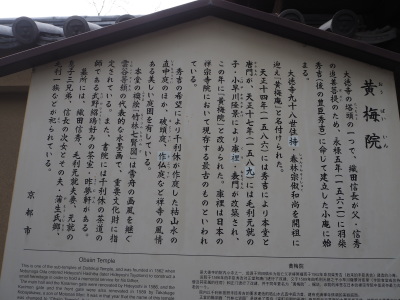 黄梅院
おう ばい いん
大徳寺の塔頭の一つで、織田信長が父・信秀
の追善菩提のため、永禄五年(一五六二)に羽柴
秀吉(後の豊臣秀吉)に命じて建立した小庵に始
まる。
大徳寺九十八世住持・春林宗俶和尚を開祖に
迎え「黄梅庵」と名付けられた。
天正十四年(一五八六)には秀吉により本堂と
唐門が、天正十七年(一五八九)には毛利元就の
子・小早川隆景により庫裡・表門が改築され、
この年に「黄梅院」と改められた。庫裡は日本の
禅宗寺院において現存する最古のものといわれ
る。
秀吉の希望により千利休が作庭した枯山水の
直中庭のほか、破頭庭、作仏庭など禅寺の風情
ある美しい庭園を有している。
本堂の襖絵「竹林七賢図」は雪舟の画風を継ぐ
雲谷等顔の代表的な水墨画で、重要文化財に指
定されている。また、書院には千利休の茶道の
師である武野紹鴎好みの茶室・昨夢軒がある。
墓所には、織田信秀、毛利元就夫妻、元就の
息子三兄弟、信長の次女とその夫・蒲生氏郷、
毛利一族などが祀られている。
京都市
Obaiin Temple
This is one of the sub-temples of Daitoku-ji Temple, and was founded in 1562 when